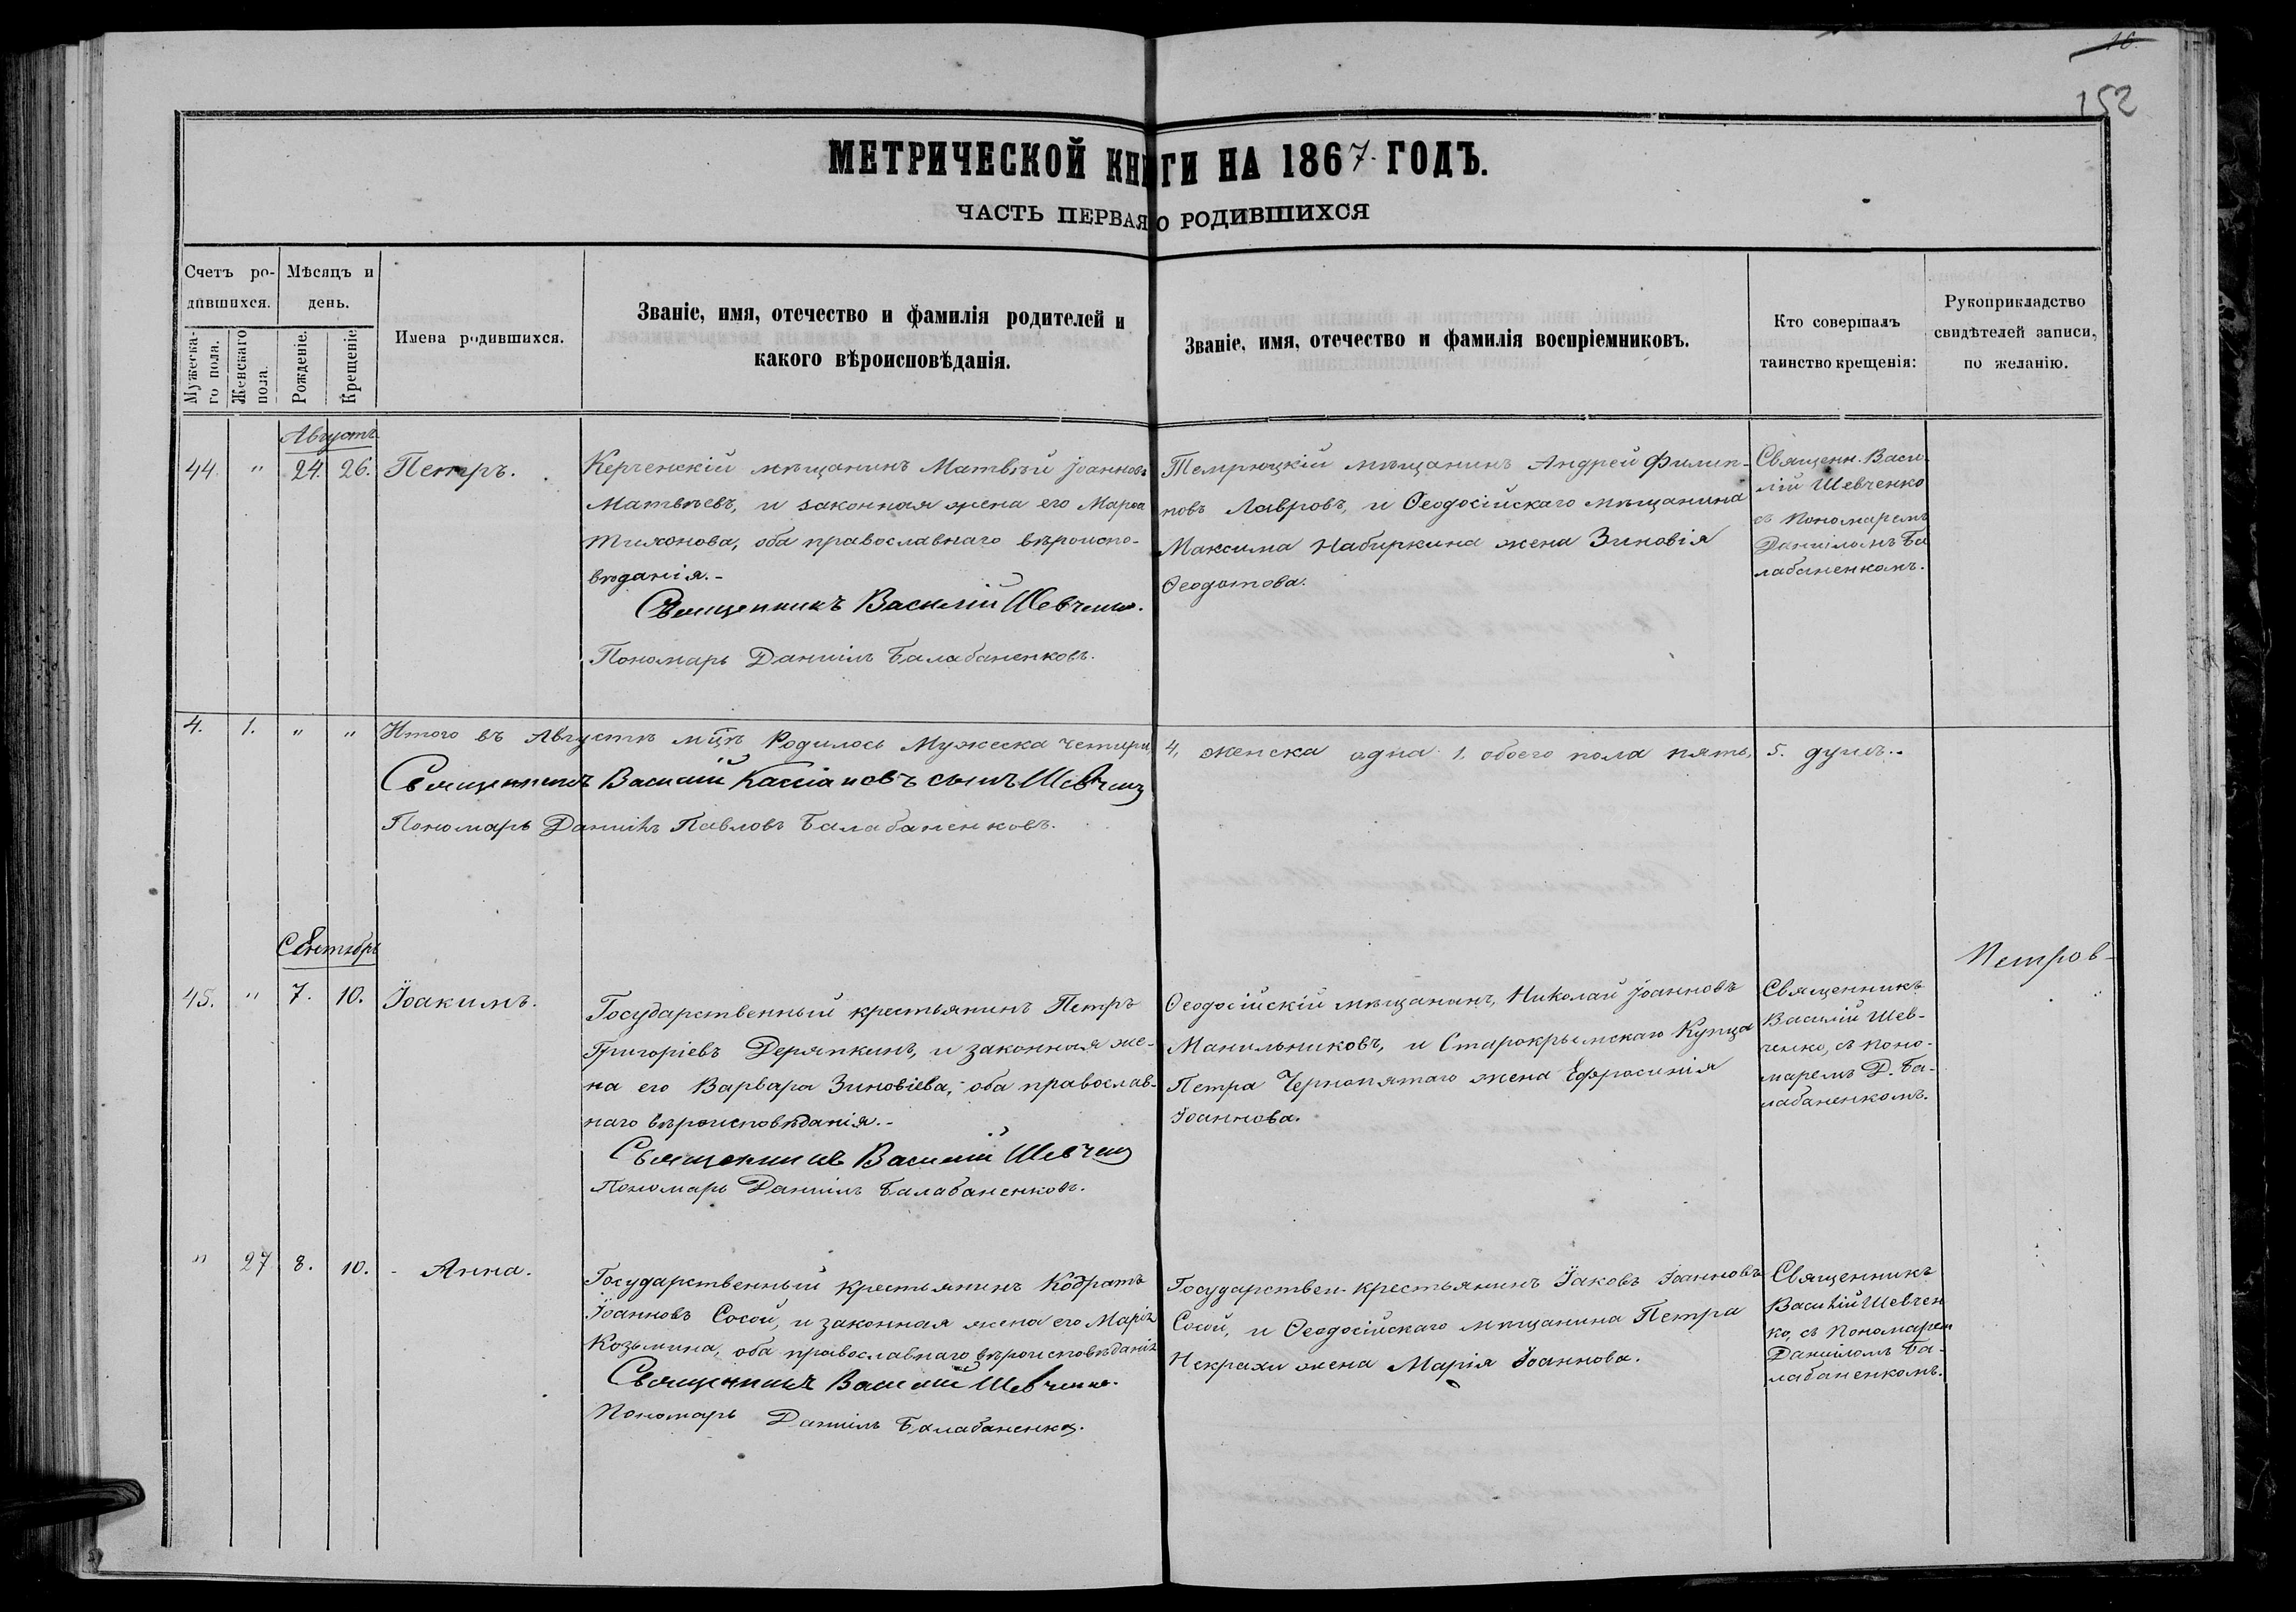 16.
152
МЕТРИЧЕСКОЙ КНИГИ НА 1867 ГОДЪ.
ЧАСТЬ ПЕРВАЯ О РОДИВШИХСЯ
Счетъ ро-
дившихся.
Мужеска-
го пола.
Женскаго
пола.
Мѣсяцъ и
день.
Рожденіе.
Крещеніе.
Имена родившихся.
Званіе, имя, отечество и фамилія родителей и
какого вѣроисповѣданія.
Званіе, имя, отечество и фамилія воспріемниковъ.
Кто совершалъ
таинство крещенія:
Рукоприкладство
свидѣтелей записи,
по желанію.
Августъ
44. " 24. 26. Петръ.
Керченскій мѣщанинъ Матвѣй Іоанновъ
Матвѣевъ, и законная жена его Марѳа
Тихонова, оба православнаго вѣроиспо-
вѣданія.-
Священникъ Василій Шевченко.
Пономарь Даніилъ Балабаненковъ.
Темрюцкій мѣщанинъ Андрей Филип-
повъ Лавровъ, и Ѳеодосійскаго мѣщанина
Максима Набиркина жена Зиновія
Ѳеодотова.
Священн. Васи-
лій Шевченко
съ Пономаремъ
Даніиломъ Ба
лабаненкомъ.
4. 1. " " Итого въ Августѣ мцѣ Родилось Мужеска четыри 4, женска одна 1. обоего пола пять, 5. душъ.-
Священникъ Василій Кассіановъ сынъ Шевченко
Пономарь Даніилъ Павловъ Балабаненковъ.
Сентябрь
45. " 7. 10. Іоакимъ.
Государственный крестьянинъ Петръ
Григоріевъ Деряпкинъ, и законная же-
на его Варвара Зиновіева, оба православ-
наго вѣроисповѣданія.-
Священникъ Василій Шевченко
Пономарь Даніилъ Балабаненковъ.
Ѳеодосійскій мѣщанинъ, Николай Іоанновъ
Манильниковъ, и Старокрымскаго Купца
Петра Чернопятаго жена Ефросинія
Іоаннова.
Священникъ
Василій Шев-
ченко, съ поно-
маремъ Д. Ба-
лабаненкомъ.
Петров-
" 27 8. 10. - Анна.
Государственный крестьянинъ Кодратъ
Іоанновъ Сосой, и законная жена его Марія
Козьмина, оба православнаго вѣроисповѣданія
Священникъ Василій Шевченко.
Пономарь Даніилъ Балабаненко.
Государствен. крестьянинъ Іаковъ Іоанновъ
Сосой, и Ѳеодосійскаго мѣщанина Петра
Некрахи жена Марія Іоаннова.
Священникъ
Василій Шевчен
ко, съ Пономарем
Даніиломъ Ба-
лабаненкомъ.